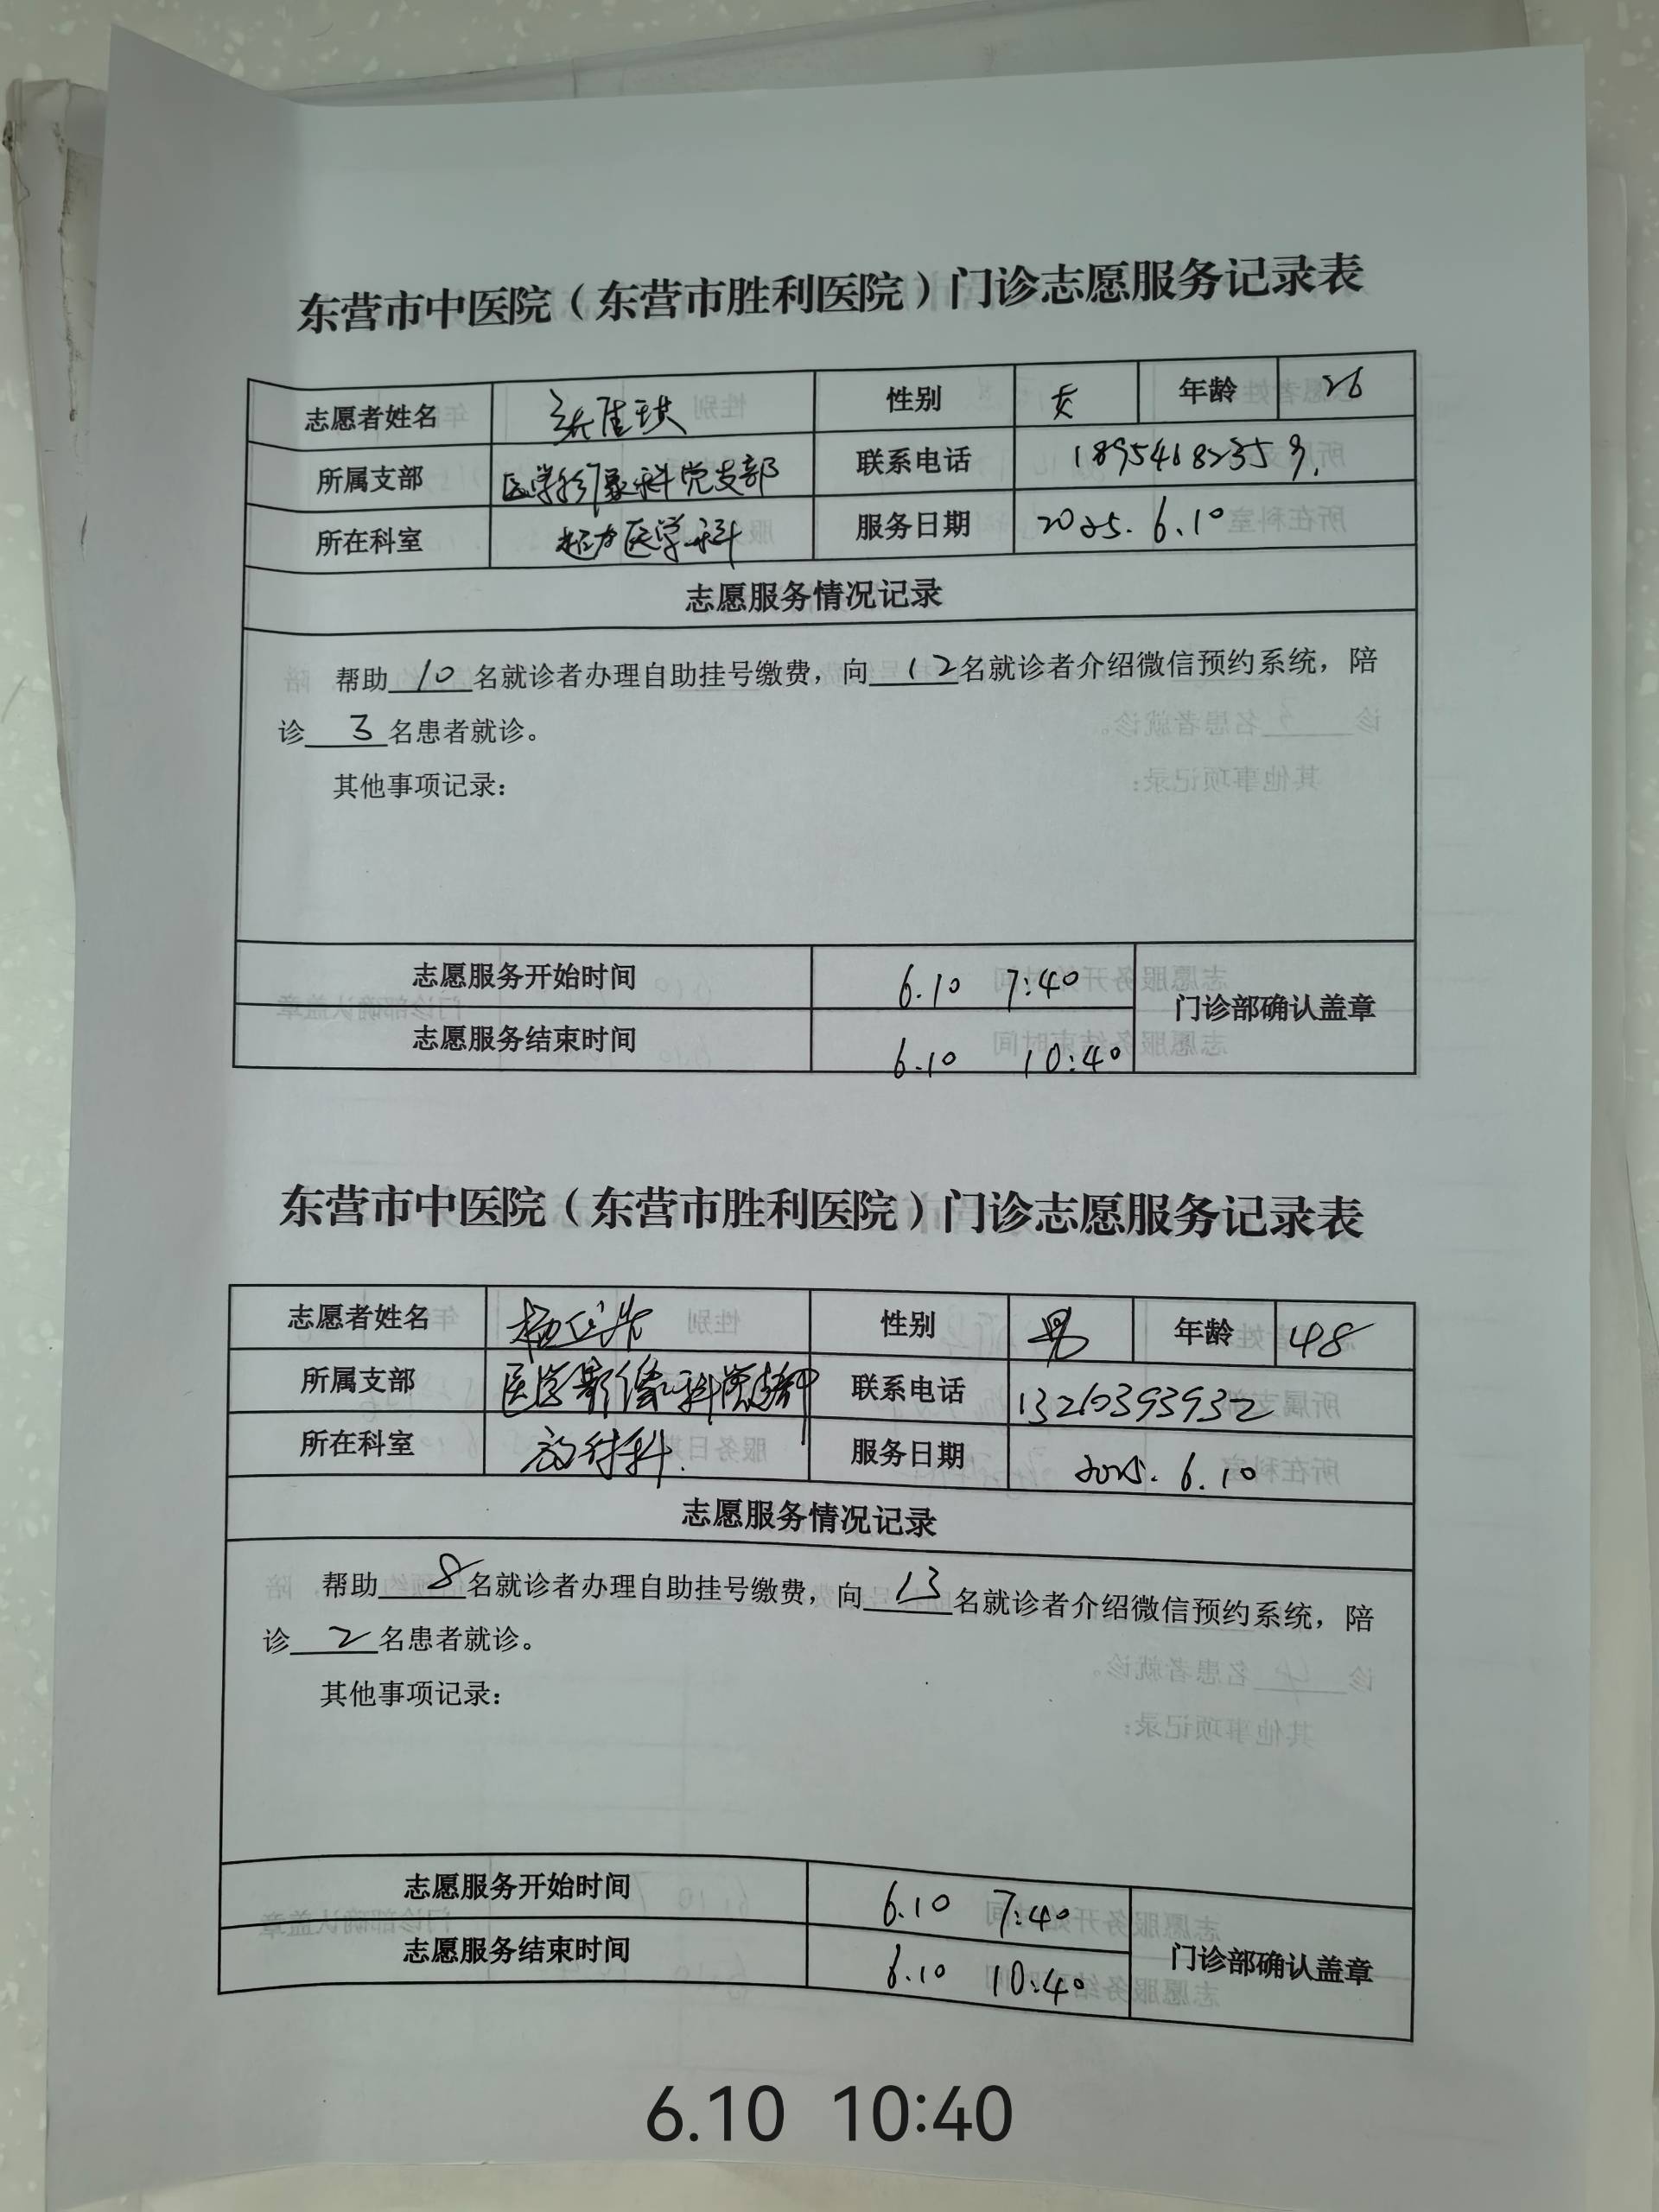 东营市中医院（东营市胜利医院）门诊志愿服务记录表
志愿者姓名 张佳琪 性别 女 年龄 26
所属支部 医学影像科党支部 联系电话 18954682359.
所在科室 检验医学科 服务日期 2025. 6.10
志愿服务情况记录
帮助10名就诊者办理自助挂号缴费，向12名就诊者介绍微信预约系统，陪
诊3名患者就诊。
其他事项记录：
志愿服务开始时间 6.10 7:40
门诊部确认盖章
志愿服务结束时间 6.10 10:40
东营市中医院（东营市胜利医院）门诊志愿服务记录表
志愿者姓名 性别 男 年龄 48
所属支部 医学影像科党支部 联系电话 13210393932
所在科室 放射科. 服务日期 2025. 6.10
志愿服务情况记录
帮助8名就诊者办理自助挂号缴费，向13名就诊者介绍微信预约系统，陪
诊2名患者就诊。
其他事项记录：
志愿服务开始时间 6.10 7:40
门诊部确认盖章
志愿服务结束时间 6.10 10:40
6.10 10:40